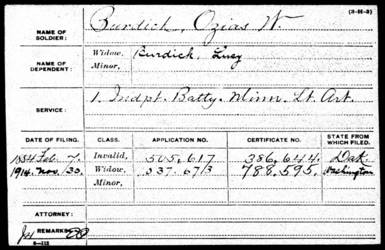 (3-H-3)
NAME OF SOLDIER: Burdick, Ozias W.
NAME OF DEPENDENT: Widow, Burdick, Lucy
Minor,
SERVICE: 1. Indpt. Batty. Minn. Lt. Art.
DATE OF FILING. CLASS. APPLICATION NO. CERTIFICATE NO. STATE FROM WHICH FILED.
1884 Feb. 7. Invalid, 505,617 386,644. Dak.
1914. Nov. 30. Widow, 788,595. Washington
Minor,
ATTORNEY:
REMARKS: